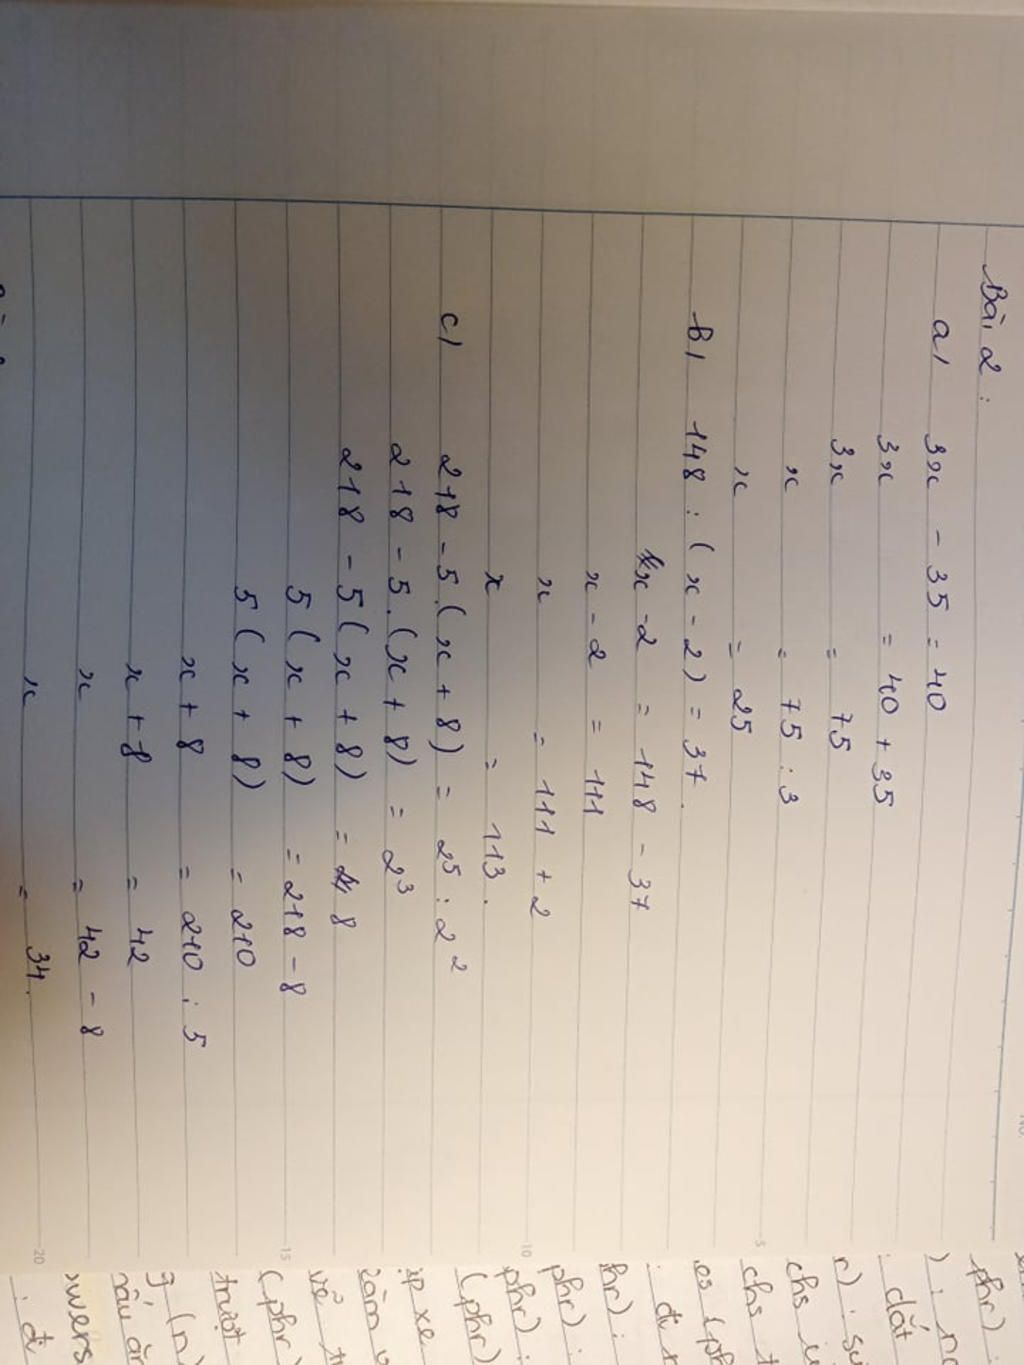 Bài 2 :
a) 3x - 35 = 40
3x = 40 + 35
3x = 75
x = 75 : 3
x = 25
b) 148 : ( x - 2 ) = 37 .
x - 2 = 148 - 37
x - 2 = 111
x = 111 + 2
x = 113 .
c) 218 - 5 . ( x + 8 ) = 2⁵ : 2²
218 - 5 . ( x + 8 ) = 2³
218 - 5 ( x + 8 ) = 8
5 ( x + 8 ) = 218 - 8
5 ( x + 8 ) = 210
x + 8 = 210 : 5
x + 8 = 42
x = 42 - 8
x = 34 .
5
10
15
20
phr) :
: dắt
chs
chs t
: đi r
hr) :
phr) :
phr) :
(phr)
ip xe
về
(phr
trượt
(n)
nấu ăn
: đi